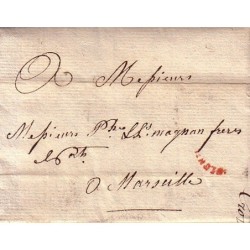 A Messieurs
Messieurs Phe & Lt magnan freres
A Marseille